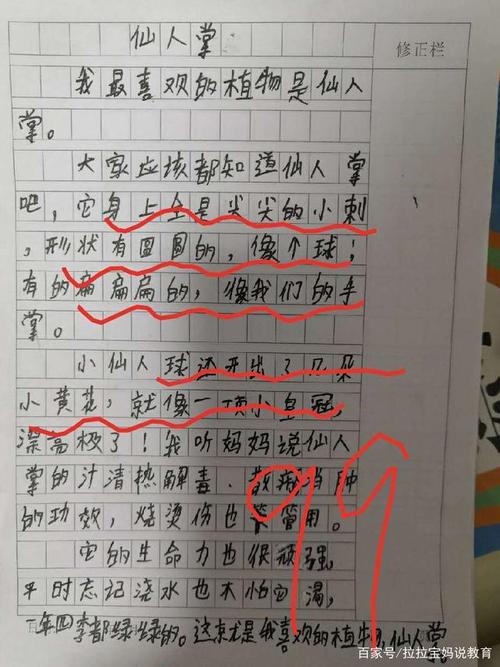 仙人掌
修正栏
我最喜欢的植物是仙人
掌。
大家应该都知道仙人掌
吧，它身上全是尖尖的小刺
，形状有圆圆的，像个球；
有的扁扁扁的，像我们的手
掌。
小仙人球还开出了几朵
小黄花，就像一顶小皇冠，
漂亮极了！我听妈妈说仙人
掌的汁清热解毒、散瘀消肿
的功效，烧烫伤也管用。
它的生命力也很顽强，
平时忘记浇水也不怕它渴，
一年四季都绿绿的。这就是我喜欢的植物，仙人掌
百家号/拉拉宝妈说教育